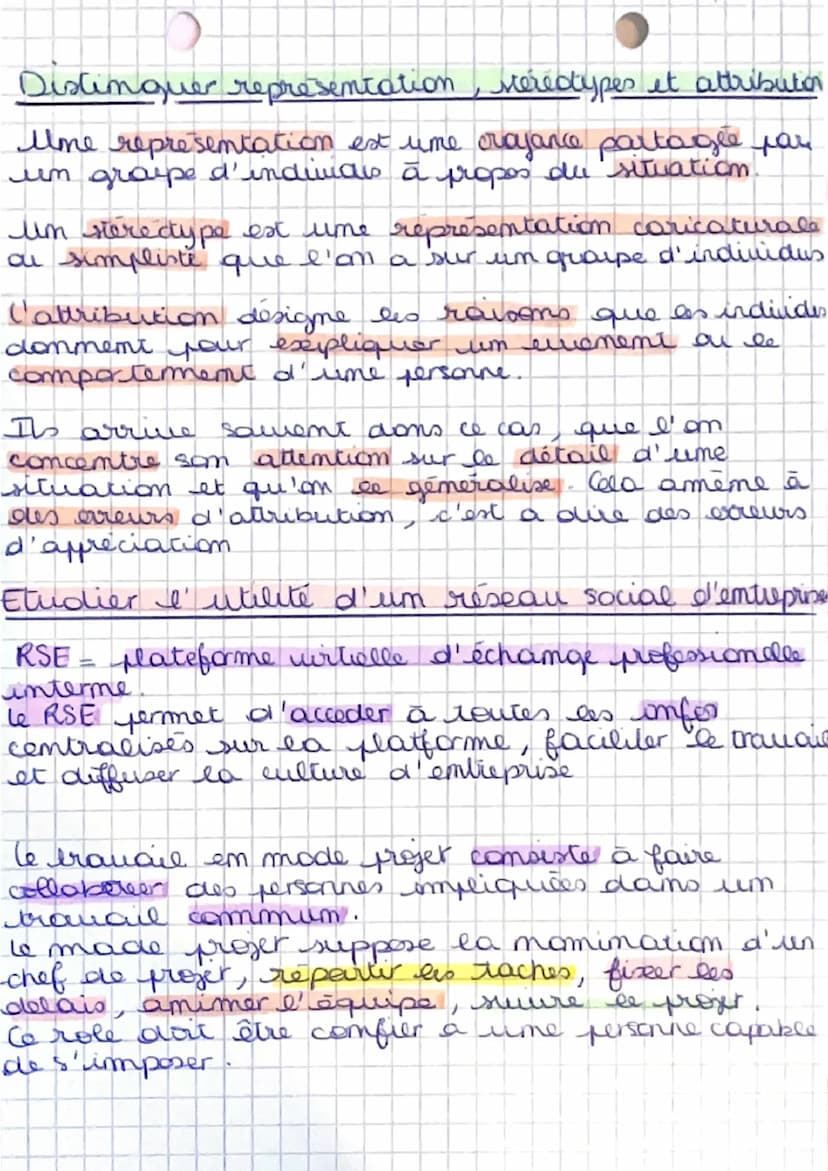 Distinguer représentation, stéréotypes et attribution
Une représentation est une croyance partagée par
un groupe d'individus à propos du situation.
Un stéréotype est une représentation caricaturale
ou simpliste que l'on a sur un groupe d'individus
L'attribution désigne les raisons que les individus
donnement pour expliquer un evenement ou le
comportement d'une personne.
Ils arrive souvent dans ce cas, que l'on
concentre son attention sur le détail d'une
situation et qu'on le généralise. Cela amène à
des erreurs d'attribution, c'est a dire des erreurs
d'appréciation
Etudier l'utilité d'un réseau social d'entreprise
RSE = plateforme virtuelle d'échange professionelle
interne.
Le RSE permet d'acceder à toutes les infos
centralisés sur la platforme, faciliter le travail
et diffuser la culture d'entreprise
Le travail en mode projet consiste à faire
collaborer des personnes impliquées dans un
travail commun.
Le mode projet suppose la nomination d'un
chef de projet, répartir les taches, fixer les
delais, animer l'équipe, suivre le projet.
Ce role doit être confier a une personne capable
de s'imposer.